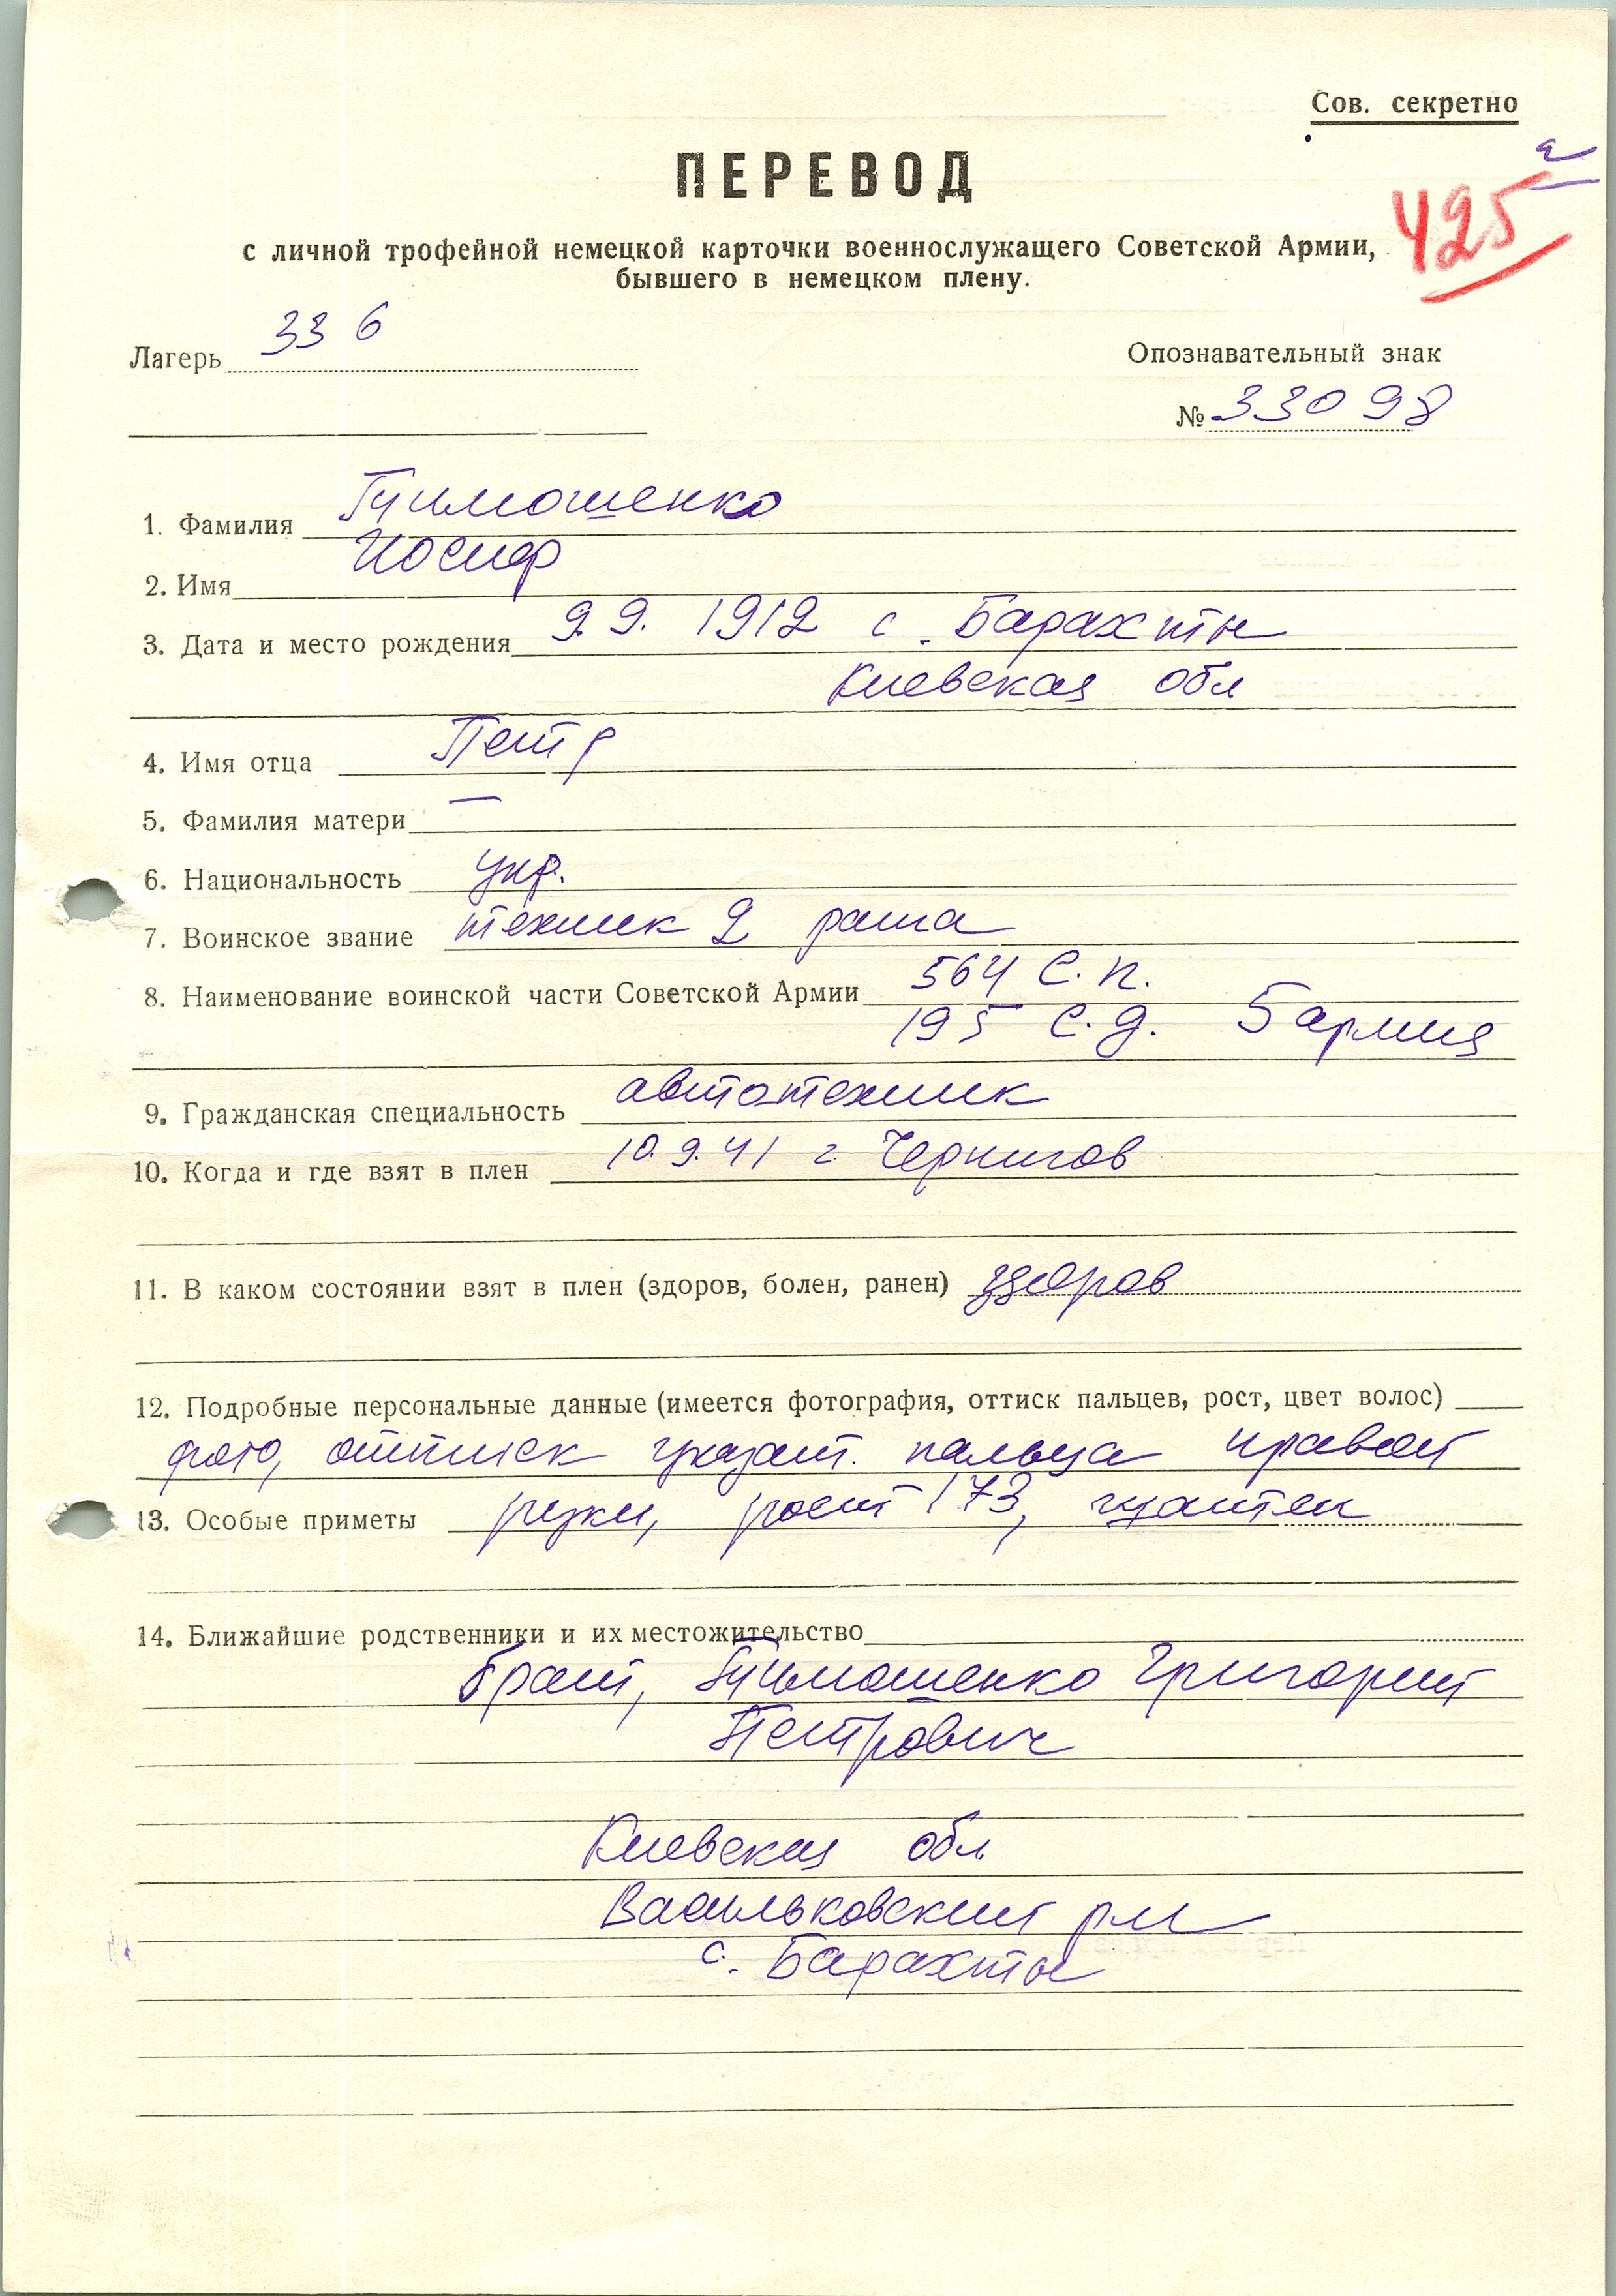 Сов. секретно
ПЕРЕВОД
425
с личной трофейной немецкой карточки военнослужащего Советской Армии,
бывшего в немецком плену.
Лагерь 336
Опознавательный знак
№ 33098
1. Фамилия Тимошенко
2. Имя Иосиф
3. Дата и место рождения 9.9. 1912 с. Барахты
Киевская обл
4. Имя отца Петр
5. Фамилия матери —
6. Национальность укр.
7. Воинское звание техник 2 ранга
8. Наименование воинской части Советской Армии 564 С.п.
195 С.д. 5 армия
9. Гражданская специальность автотехник
10. Когда и где взят в плен 10.9.41 г Чернигов
11. В каком состоянии взят в плен (здоров, болен, ранен) здоров
12. Подробные персональные данные (имеется фотография, оттиск пальцев, рост, цвет волос)
фото, оттиск указат. пальца правой
13. Особые приметы руки, рост 173, шатен
14. Ближайшие родственники и их местожительство
брат, Тимошенко Григорий
Петрович
Киевская обл
Васильковский р-н
с. Барахты